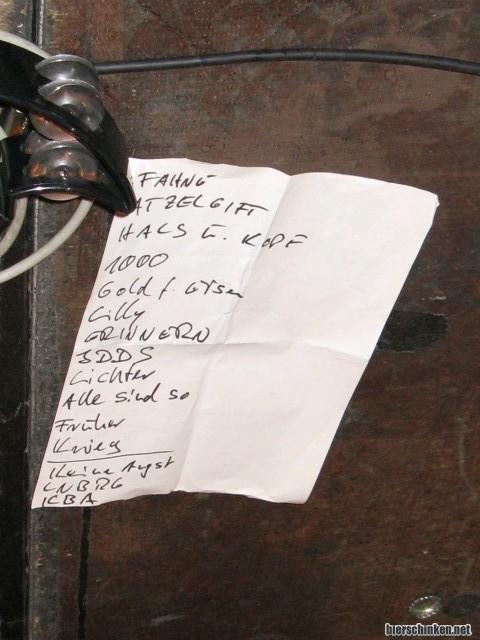 FAHNE
ATZELGIFT
HALS Ü. KOPF
1000
Gold f. Eisen
Cilly
ERINNERN
SDDS
Lichter
Alle sind so
Früher
Krieg
Keine Angst
LNBRG
KBA
bierschinken.net